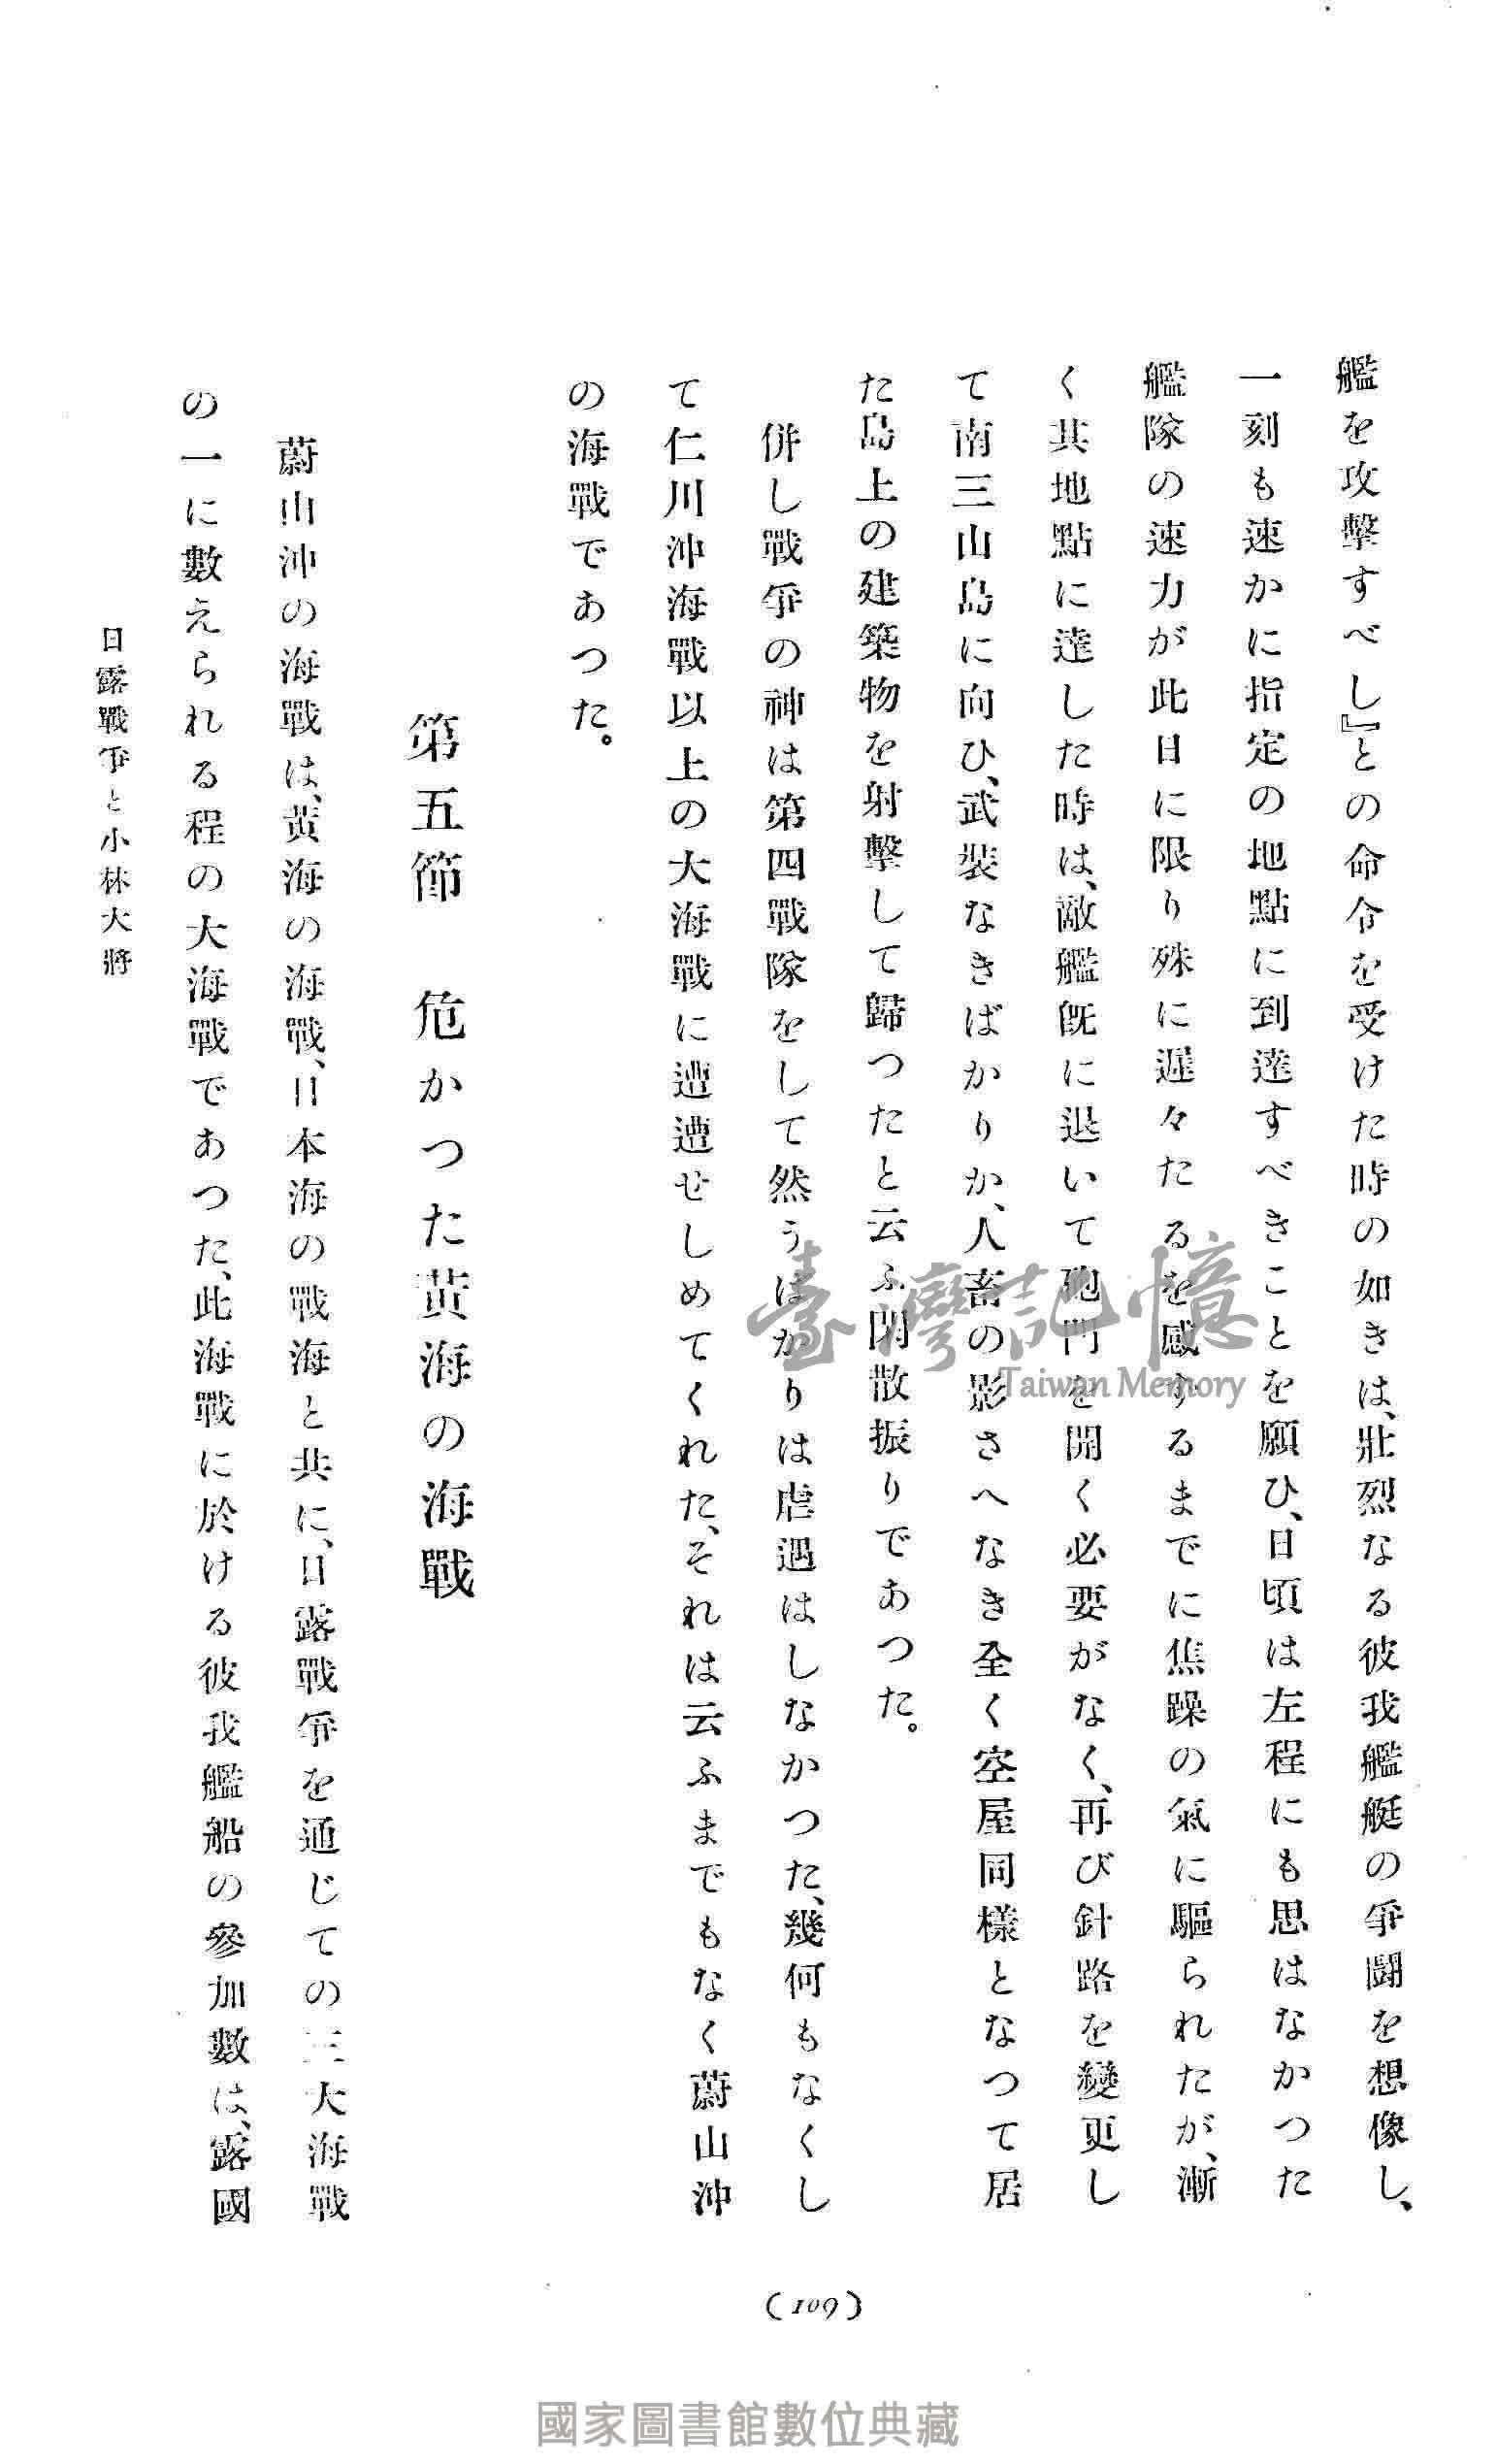 艦を攻擊すべし』との命令を受けた時の如きは、壯烈なる彼我艦艇の爭鬪を想像し、
一刻も速かに指定の地點に到達すべきことを願ひ、日頃は左程にも思はなかつた
艦隊の速力が此日に限り殊に遲々たるを感するまでに焦躁の氣に驅られたが、漸
く其地點に達した時は、敵艦旣に退いて砲門を開く必要がなく、再び針路を變更し
て南三山島に向ひ、武裝なきばかりか、人畜の影さへなき全く空屋同樣となつて居
た島上の建築物を射擊して歸つたと云ふ閑散振りであつた。
併し戰爭の神は第四戰隊をして然うはかりは虐遇はしなかつた、幾何もなくし
て仁川沖海戰以上の大海戰に遭遭せしめてくれた、それは云ふまでもなく蔚山沖
の海戰であつた。
第五節 危かつた黃海の海戰
蔚山沖の海戰は、黃海の海戰、日本海の戰海と共に、日露戰爭を通じての三大海戰
の一に數えられる程の大海戰であつた、此海戰に於ける彼我艦船の參加數は、露國
日露戰爭と小林大將
(109)
臺灣記憶
Taiwan Memory
國家圖書館數位典藏